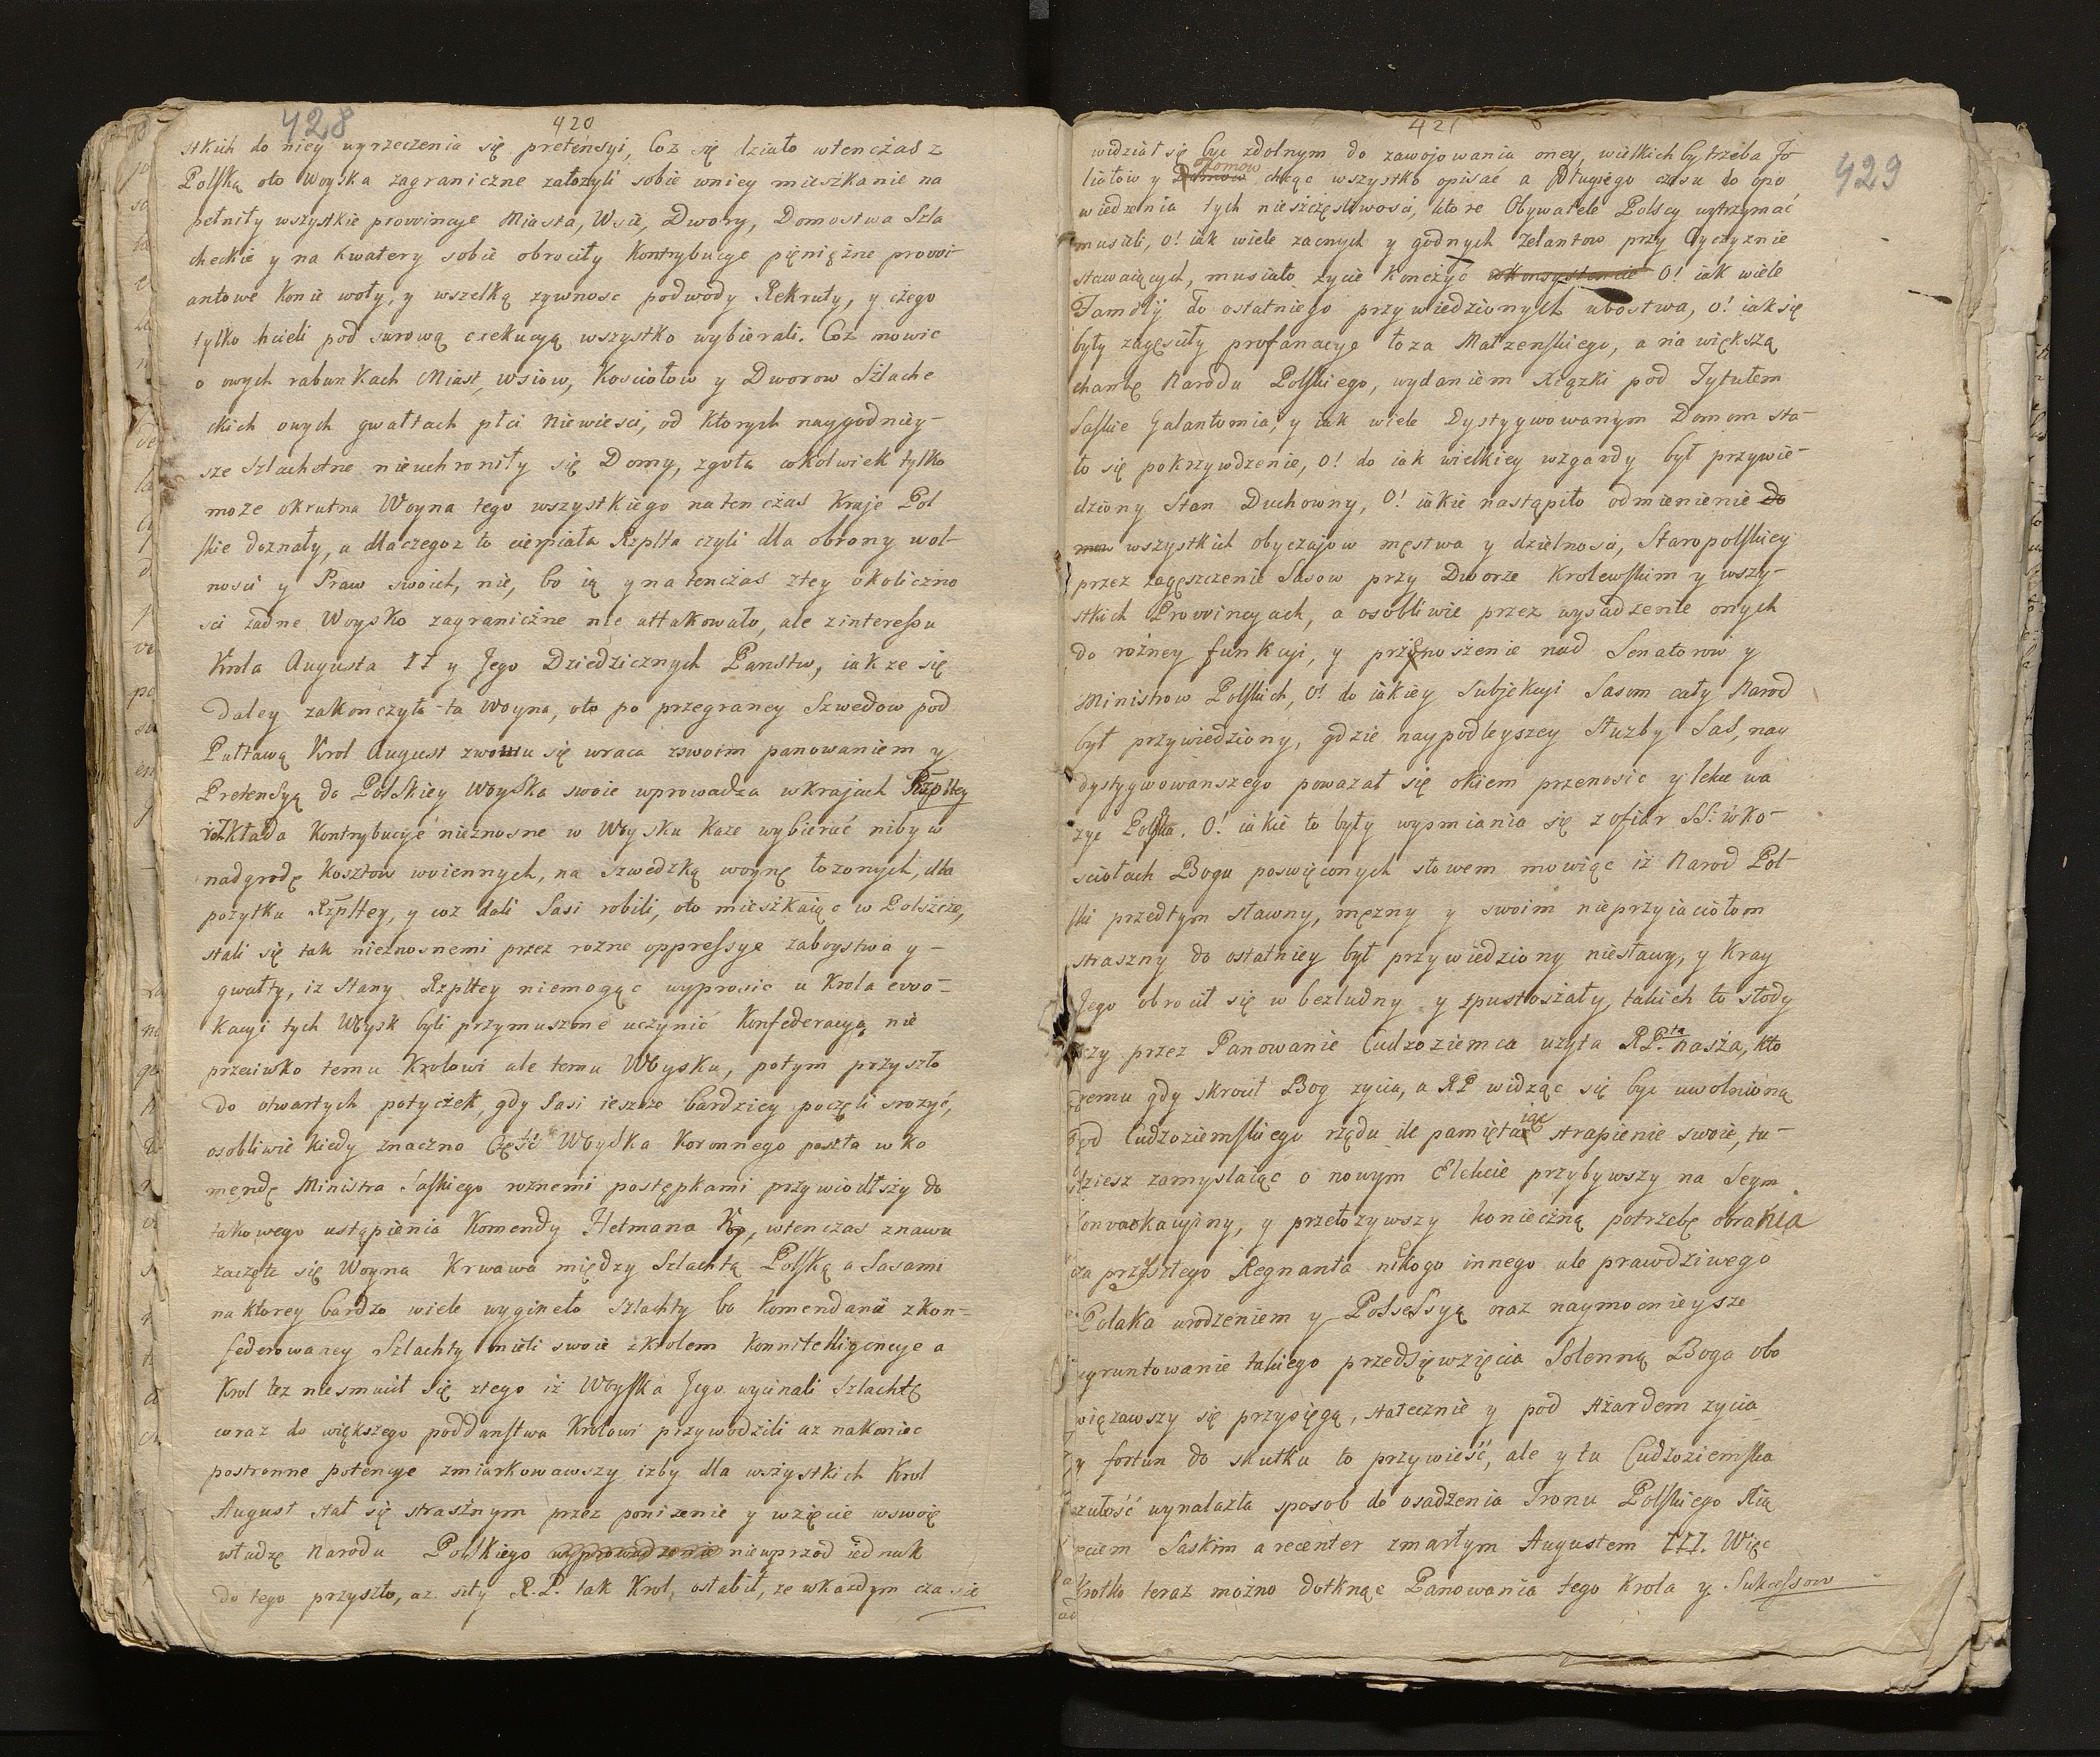 428
420
stkich do niey uprzeczenia się pretensyi, Coz się działo wtenczas z
Polską oto Woyska zagraniczne założyli sobie wniey mieszkanie na
pełniły wszystkie prowincye Miasta, Wsie, Dwory, Domostwa Szla
checkie y na Kwatery sobie obrociły Kontrybucye pieniężne prowi-
antowe Konie woły, y wszelką zywnosc podwody Rekruty, y czego
tylko hcieli pod surową exekucyą wszystko wybierali. Coz mowic
o owych rabunkach Miast, wsiow, Kosciołow y Dworow Szlache
ckich owych gwałtach płci Niewiesci, od ktorych naygodniey-
sze Szlachetne nieuchroniły się Domy, zgoła cokolwiek tylko
moze okrutna Woyna tego wszystkiego natenczas Kraje Pol
skie doznały, a dlaczegoz to cierpiała Rzplta czyli dla obrony wol-
nosci y Praw swoich, nie, bo ią y natenczas złey okoliczno
sci żadne Woysko zagraniczne nie attakowało, ale zinteressu
Krola Augusta II y Jego Dziedzicznych Panstw, iakze się
daley zakonczyła ta Woyna, oto po przegraney Szwedow pod
Pułtawą Krol August znowu się wraca zswoim panowaniem y
Pretensyą do Polskiey Woyska swoie wprowadza wkrajach Rzpltey
rozkłada Kontrybucye nieznosne w Woysku Kaze wybierać niby w
nadgrodę Kosztow woiennych, na Szwedzką woynę łozonych, dla
pozytku Rzpltey, y coz dali Sasi robili, oto mieszkaiąc w Polszcze,
stali się tak nieznosnemi przez rozne oppressye zaboystwa y -
gwałty, iz Stany Rzpltey niemogąc wyprosic u Krola ewo-
kacyi tych Woysk byli przymuszone uczynić Konfederacyą nie
przeciwko temu Krolowi ale temu Woysku, potym przyszło
do otwartych potyczek, gdy Sasi ieszcze bardziey poczęli srozyć,
osobliwie kiedy znaczna Część Woyska Koronnego poszła w ko
mendę Ministra Saskiego roznemi postępkami przywiodłszy do
takowego ustąpienia Komendy Hetmana wtenczas znawu
zaczęła się Woyna Krwawa między Szlachtą Polską a Sasami
na ktorey bardzo wiele wygineło szlachty bo Komendanci zkon-
federowaney Szlachty mieli swoie zkrolem Konnitelligencye a
Krol tez niesmucił się ztego iz Woyska Jego wycinali Szlachtę
coraz do większego poddanstwa Krolowi przywodzili az nakoniec
postronne potencye zmiarkowawszy izby dla wszystkich Krol
August stał się strasznym przez ponizenie y wzięcie wswoię
władzę Narodu Polskiego wyprowadzenie nieuprzod iednak
do tego przyszło, az siły R.P. tak Krol, osłabił, ze wkazdym cza sie
421
429
widział się byc zdolnym do zawojowania oney, wielkich by trzeba Jo
liałow y Domow chcąc wszystko opisać a długiego czasu do opo
wiedzenia tych nieszczęsliwosci, ktore Obywatele Polscy wytrzymać
musieli, O! iak wiele zacnych y godnych Zelantow przy Oyczyznie
stawaiących, musiało zycie konczyć O! iak wiele
Familij do ostatniego przywiedzionych ubostwa, O! iak się
były zagęsciły profanacye łoza Małzenskiego, a na większą
chanbę Narodu Polskiego, wydaniem Xiązki pod Tytułem
Saskie Galantomia, y iak wiele Dystyngwowanym Domom sta-
ło się pokrzywdzenie, O! do iak wielkiey wzgardy był przywie-
dziony Stan Duchowny, O! iakie nastąpiło odmienienie do
mow wszystkich obyczajow męstwa y dzielnosci, Staropolskiey
przez zagęszczenie Sasow przy Dworze Krolewskim y wszy-
stkich Prowincyach, a osobliwie przez wysadzenie onych
do rożney funkcyi, y przenoszenie nad Senatorow y
Ministrow Polskich, O! do iakiey Subjekcyi Sasom cały Narod
był przywiedziony, gdzie naypodleyszey Służby Sas, nay
dystyngwowanszego powazał się okiem przenosic y lekce wa
zyc Polska. O! iakie to były wysmiania się z ofiar SS. w ko-
sciołach Bogu poswięconych słowem mowiąc iz Narod Pol-
ski przedtym sławny, męzny y swoim nieprzyiaciołom
straszny do ostatniey był przywiedziony niesławy, y Kray
Jego obrocił się w bezludny y spustoszały, takich to słody
czy przez Panowanie Cudzoziemca uzyła RP.ta nasza, kto
remu gdy skrocił Bog zycia, a RP widząc się byc uwolnioną
od Cudzoziemskiego rządu ile pamiętaiąc strapienie swoie, tu-
dziesz zamyslaiąc o nowym Elekcie przybywszy na Seym
Convockacyiny, y przełozywszy konieczną potrzebę obrania
za przeszłego Regnanta nikogo innego ale prawdziwego
Polaka urodzeniem y Possessyą oraz naymocnieysze
ugruntowanie takiego przedsięwzięcia Solenną Boga obo
wiązawszy się przysięgą, statecznie y pod Ażardem zycia
y fortun do skutku to przywieść, ale y tu Cudzoziemska
czułość wynalazła sposob do osadzenia Tronu Polskiego Xią
zęciem Saskim a recenter zmarłym Augustem III. Więc
Krotko teraz możno dotknąc Panowania tego Krola y Sukcessow